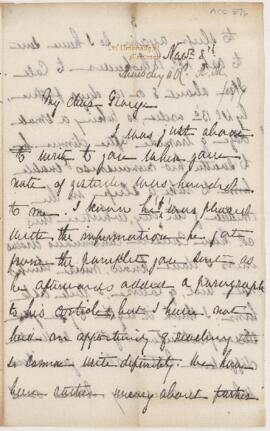 ACC 876
Novr 8th
Thursday
My dear George
I was just about
to write to you when your
note of yesterday was handed
to me. I know he was pleased
with the information he got
from the pamphlet you sent as
he afterwards added a paragraph
to his article, but I have not
had an opportunity of reading
so cannot write definitely. We have
been rather uneasy about